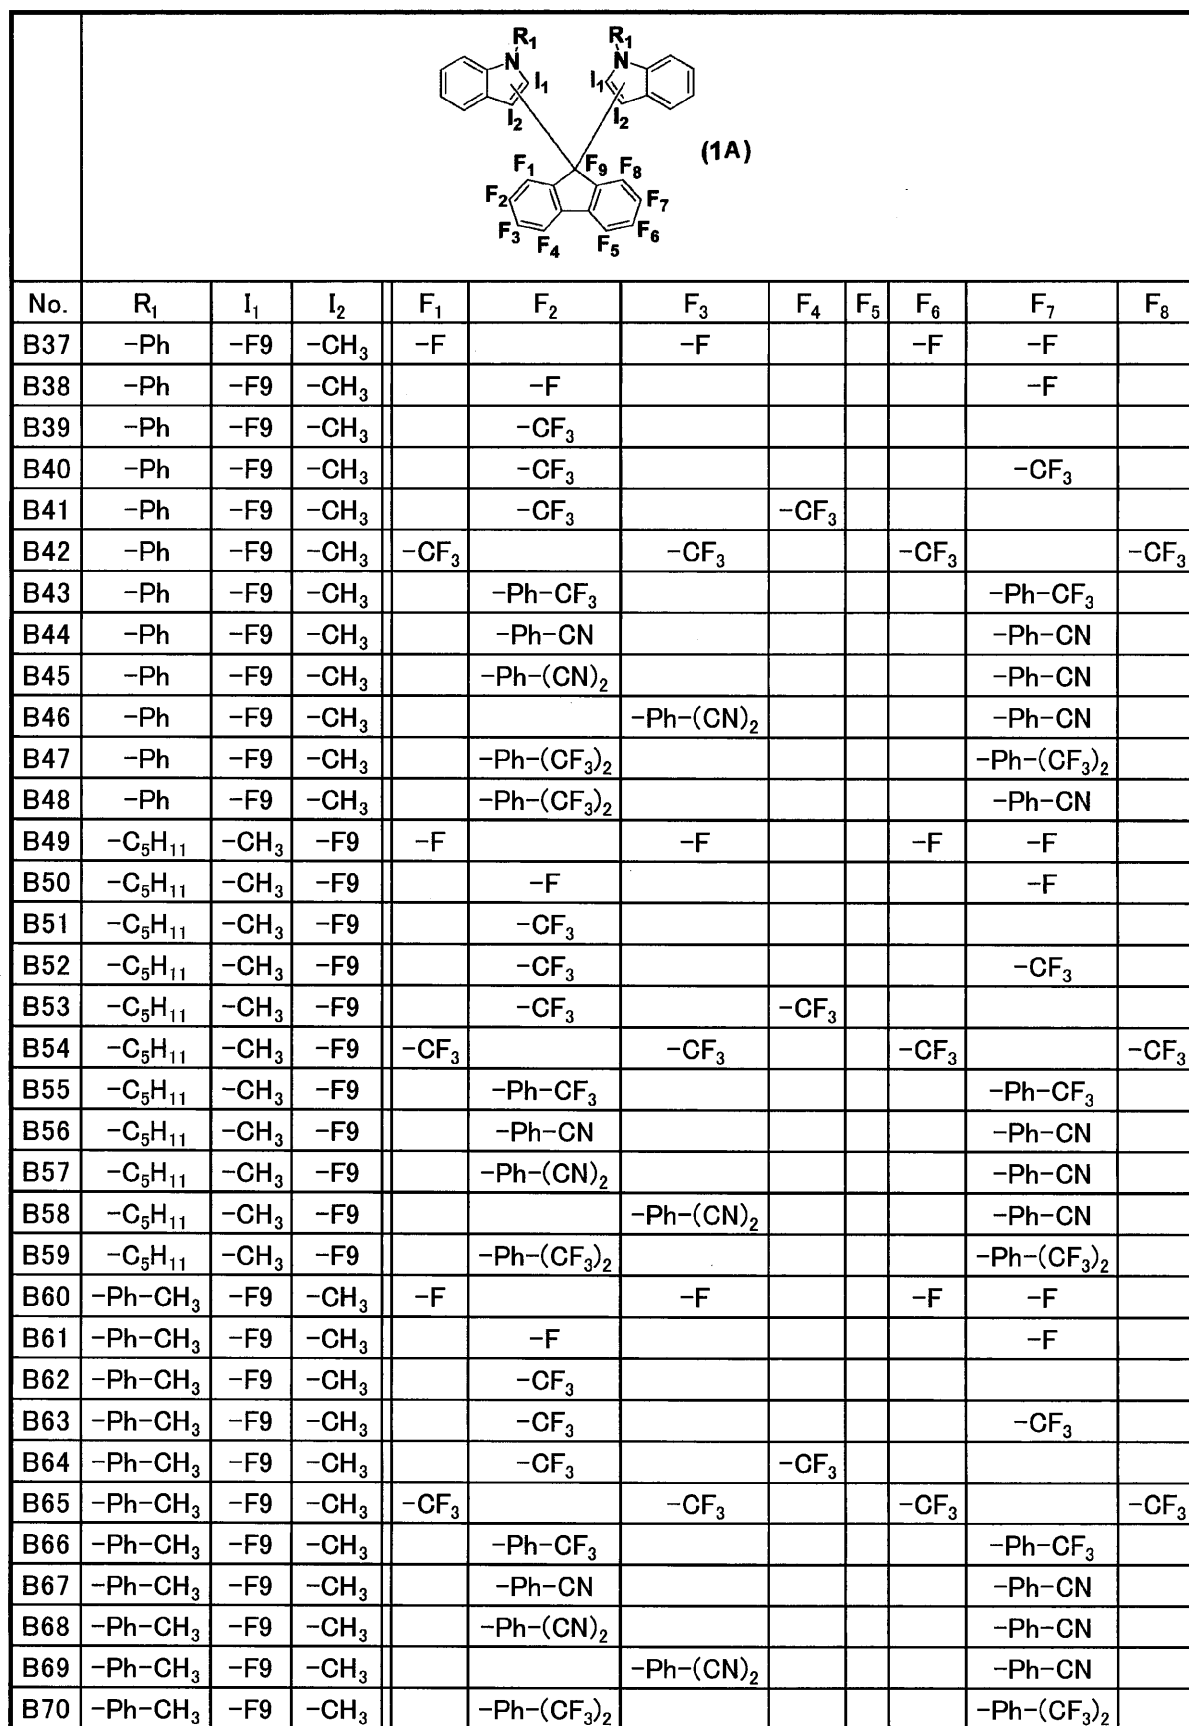 R₁ R₁
N N
I₁ I₁
I₂ I₂
(1A)
F₁ F₉ F₈
F₂ F₇
F₃ F₆
F₄ F₅
No. R₁ I₁ I₂ F₁ F₂ F₃ F₄ F₅ F₆ F₇ F₈
B37 -Ph -F9 -CH₃ -F -F -F -F
B38 -Ph -F9 -CH₃ -F -F
B39 -Ph -F9 -CH₃ -CF₃
B40 -Ph -F9 -CH₃ -CF₃ -CF₃
B41 -Ph -F9 -CH₃ -CF₃ -CF₃
B42 -Ph -F9 -CH₃ -CF₃ -CF₃ -CF₃ -CF₃
B43 -Ph -F9 -CH₃ -Ph-CF₃ -Ph-CF₃
B44 -Ph -F9 -CH₃ -Ph-CN -Ph-CN
B45 -Ph -F9 -CH₃ -Ph-(CN)₂ -Ph-CN
B46 -Ph -F9 -CH₃ -Ph-(CN)₂ -Ph-CN
B47 -Ph -F9 -CH₃ -Ph-(CF₃)₂ -Ph-(CF₃)₂
B48 -Ph -F9 -CH₃ -Ph-(CF₃)₂ -Ph-CN
B49 -C₅H₁₁ -CH₃ -F9 -F -F -F -F
B50 -C₅H₁₁ -CH₃ -F9 -F -F
B51 -C₅H₁₁ -CH₃ -F9 -CF₃
B52 -C₅H₁₁ -CH₃ -F9 -CF₃ -CF₃
B53 -C₅H₁₁ -CH₃ -F9 -CF₃ -CF₃
B54 -C₅H₁₁ -CH₃ -F9 -CF₃ -CF₃ -CF₃ -CF₃
B55 -C₅H₁₁ -CH₃ -F9 -Ph-CF₃ -Ph-CF₃
B56 -C₅H₁₁ -CH₃ -F9 -Ph-CN -Ph-CN
B57 -C₅H₁₁ -CH₃ -F9 -Ph-(CN)₂ -Ph-CN
B58 -C₅H₁₁ -CH₃ -F9 -Ph-(CN)₂ -Ph-CN
B59 -C₅H₁₁ -CH₃ -F9 -Ph-(CF₃)₂ -Ph-(CF₃)₂
B60 -Ph-CH₃ -F9 -CH₃ -F -F -F -F
B61 -Ph-CH₃ -F9 -CH₃ -F -F
B62 -Ph-CH₃ -F9 -CH₃ -CF₃
B63 -Ph-CH₃ -F9 -CH₃ -CF₃ -CF₃
B64 -Ph-CH₃ -F9 -CH₃ -CF₃ -CF₃
B65 -Ph-CH₃ -F9 -CH₃ -CF₃ -CF₃ -CF₃ -CF₃
B66 -Ph-CH₃ -F9 -CH₃ -Ph-CF₃ -Ph-CF₃
B67 -Ph-CH₃ -F9 -CH₃ -Ph-CN -Ph-CN
B68 -Ph-CH₃ -F9 -CH₃ -Ph-(CN)₂ -Ph-CN
B69 -Ph-CH₃ -F9 -CH₃ -Ph-(CN)₂ -Ph-CN
B70 -Ph-CH₃ -F9 -CH₃ -Ph-(CF₃)₂ -Ph-(CF₃)₂